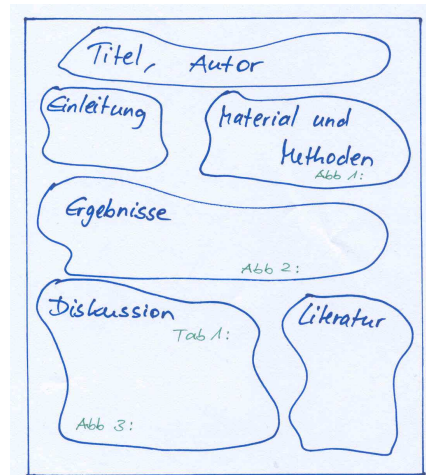 Titel, Autor
Einleitung
Material und
Methoden
Abb 1:
Ergebnisse
Abb 2:
Diskussion
Tab 1:
Abb 3:
Literatur